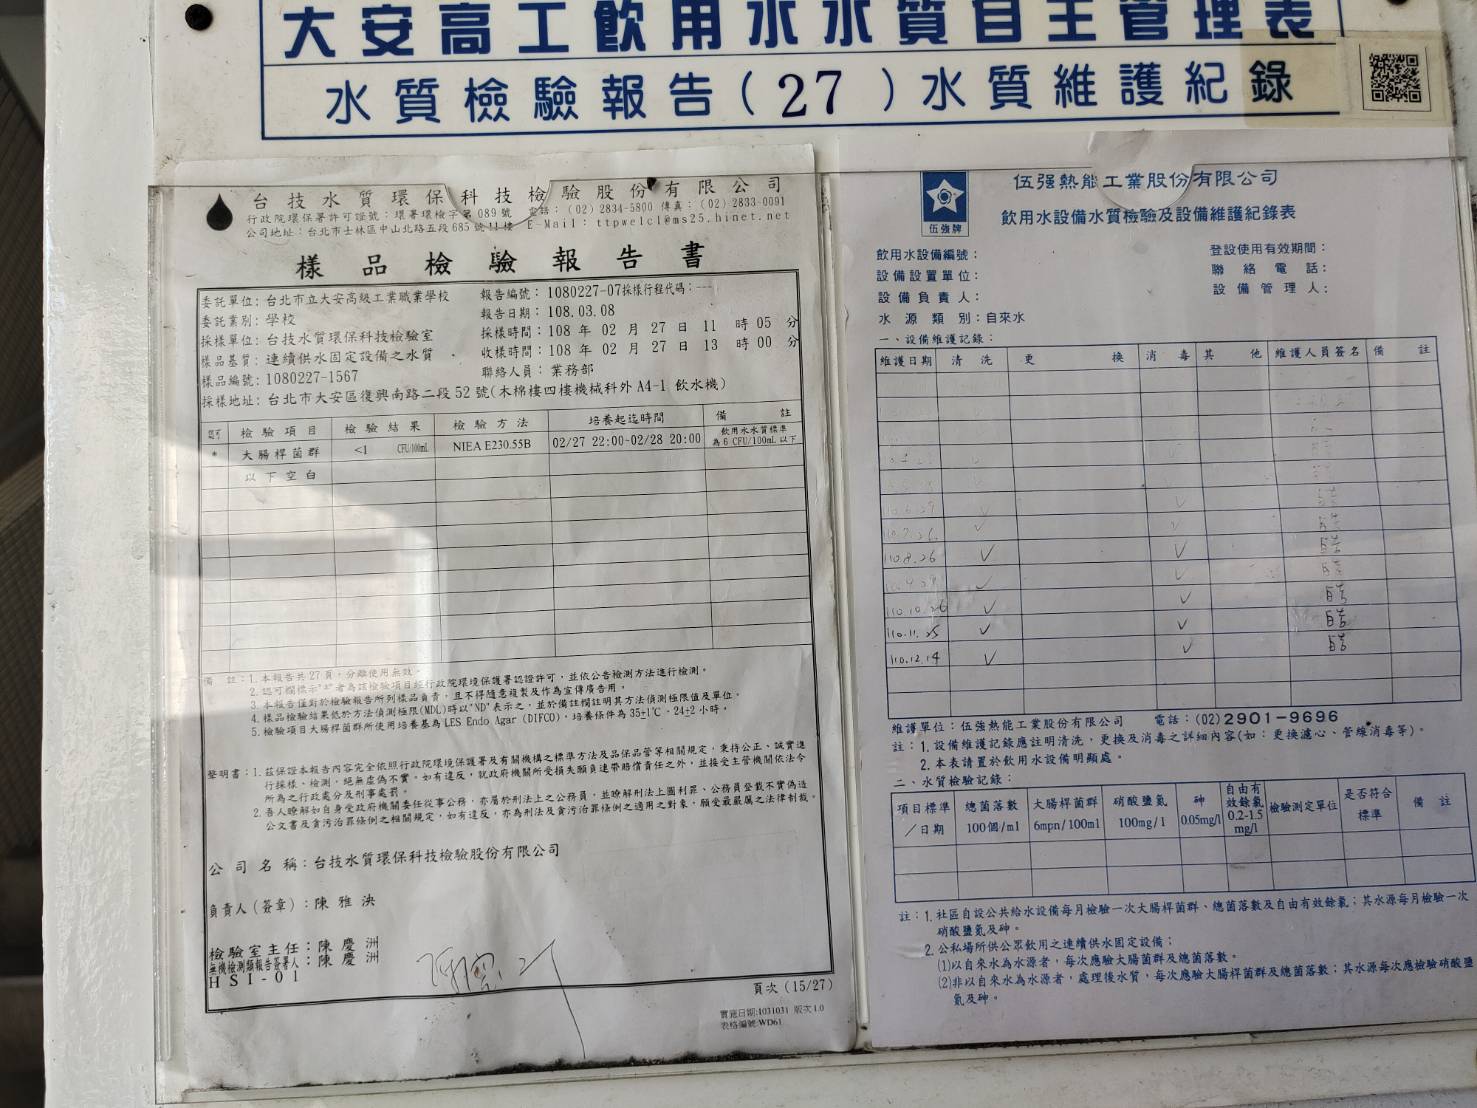 大安高工飲用水水質自主管理表
水質檢驗報告(27)水質維護紀錄
台技水質環保科技檢驗股份有限公司
行政院環保署許可證號：環署環檢字第089號 電話：(02) 2834-5800 傳真：(02) 2833-0091
公司地址：台北市士林區中山北路五段685號11樓 E-Mail：ttpwelcl@ms25.hinet.net
樣品檢驗報告書
委託單位：台北市立大安高級工業職業學校
報告編號：1080227-07採樣行程代碼：---
委託業別：學校
報告日期：108.03.08
採樣單位：台技水質環保科技檢驗室
採樣時間：108 年 02 月 27 日 11 時 05 分
樣品基質：連續供水固定設備之水質
收樣時間：108 年 02 月 27 日 13 時 00 分
樣品編號：1080227-1567
聯絡人員：業務部
採樣地址：台北市大安區復興南路二段52號(木棉樓四樓機械科外A4-1 飲水機)
認可 檢驗項目 檢驗結果 檢驗方法 培養起迄時間 備註
* 大腸桿菌群 <1 CFU/100mL NIEA E230.55B 02/27 22:00~02/28 20:00 飲用水水質標準
為 6 CFU/100mL 以下
以下空白
備 註：1.本報告共27頁，分離使用無效。
2.認可欄標示"*"者為該檢驗項目經行政院環境保護署認證許可，並依公告檢測方法進行檢測。
3.本報告僅對於檢驗報告所列樣品負責，且不得隨意複製及作為宣傳廣告用。
4.樣品檢驗結果低於方法偵測極限(MDL)時以"ND"表示之，並於備註欄註明其方法偵測極限值及單位。
5.檢驗項目大腸桿菌群所使用培養基為LES Endo Agar (DIFCO)，培養條件為35±1℃，24±2小時。
聲明書：1.茲保證本報告內容完全依照行政院環境保護署及有關機構之標準方法及品保品管等相關規定，秉持公正、誠實進
行採樣、檢測，絕無虛偽不實，如有違反，就政府機關所受損失願負連帶賠償責任之外，並接受主管機關依法令
所為之行政處分及刑事處罰。
2.吾人瞭解如自身受政府機關委任從事公務，亦屬於刑法上之公務員，並瞭解刑法上圖利罪、公務員登載不實偽造
公文書及貪污治罪條例之相關規定，如有違反，亦為刑法及貪污治罪條例之適用之對象，願受最嚴厲之法律制裁。
公司名稱：台技水質環保科技檢驗股份有限公司
負責人(簽章)：陳雅泱
檢驗室主任：陳慶洲
無機檢測類報告簽署人：陳慶洲
HSI-01
頁次 (15/27)
實施日期:1031031 版次1.0
表格編號:WD61
伍強牌
伍强熱能工業股份有限公司
飲用水設備水質檢驗及設備維護紀錄表
飲用水設備編號：
登設使用有效期間：
設備設置單位：
聯絡電話：
設備負責人：
設備管理人：
水源類別：自來水
一、設備維護記錄：
維護日期 清洗 更換 消毒 其他 維護人員簽名 備註
110.8.26 ✓ ✓
110.10.26 ✓ ✓
110.11.25 ✓ ✓
110.12.14 ✓ ✓
維護單位：伍強熱能工業股份有限公司 電話：(02)2901-9696
註：1.設備維護記錄應註明清洗，更換及消毒之詳細內容(如：更換濾心、管線消毒等)。
2.本表請置於飲用水設備明顯處。
二、水質檢驗記錄：
項目標準/日期 總菌落數 100個/ml 大腸桿菌群 6mpn/100ml 硝酸鹽氮 100mg/l 砷 0.05mg/l 自由有效餘氯 0.2-1.5 mg/l 檢驗測定單位 是否符合標準 備註
註：1.社區自設公共給水設備每月檢驗一次大腸桿菌群、總菌落數及自由有效餘氯；其水源每月檢驗一次
硝酸鹽氮及砷。
2.公私場所供公眾飲用之連續供水固定設備；
(1)以自來水為水源者，每次應驗大腸菌群及總菌落數。
(2)非以自來水為水源者，處理後水質，每次應驗大腸桿菌群及總菌落數；其水源每次應檢驗硝酸鹽
氮及砷。